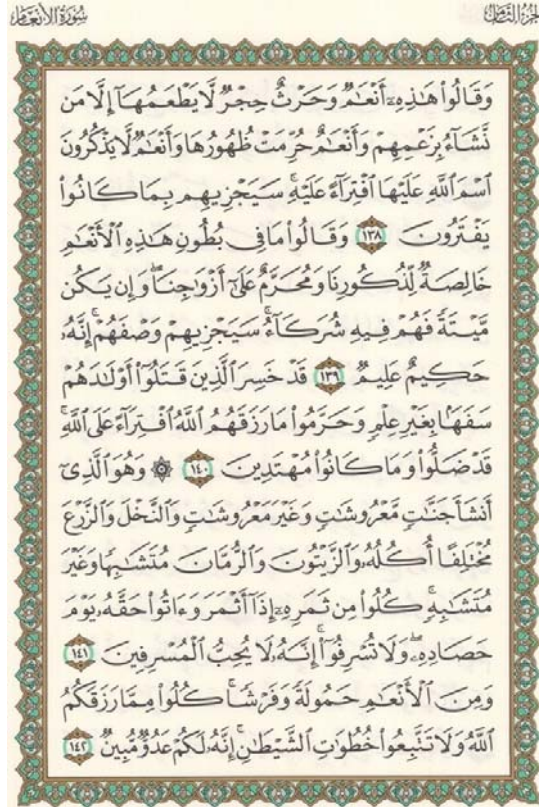 سُورَةُ الأَنْعَامِ
الجُزْءُ الثَّامِنُ
وَقَالُوا۟ هَٰذِهِۦٓ أَنْعَٰمٌ وَحَرْثٌ حِجْرٌ لَّا يَطْعَمُهَآ إِلَّا مَن
نَّشَآءُ بِزَعْمِهِمْ وَأَنْعَٰمٌ حُرِّمَتْ ظُهُورُهَا وَأَنْعَٰمٌ لَّا يَذْكُرُونَ
ٱسْمَ ٱللَّهِ عَلَيْهَا ٱفْتِرَآءً عَلَيْهِ ۚ سَيَجْزِيهِم بِمَا كَانُوا۟
يَفْتَرُونَ ١٣٨ وَقَالُوا۟ مَا فِى بُطُونِ هَٰذِهِ ٱلْأَنْعَٰمِ
خَالِصَةٌ لِّذُكُورِنَا وَمُحَرَّمٌ عَلَىٰٓ أَزْوَٰجِنَا ۖ وَإِن يَكُن
مَّيْتَةً فَهُمْ فِيهِ شُرَكَآءُ ۚ سَيَجْزِيهِمْ وَصْفَهُمْ ۚ إِنَّهُۥ
حَكِيمٌ عَلِيمٌ ١٣٩ قَدْ خَسِرَ ٱلَّذِينَ قَتَلُوٓا۟ أَوْلَٰدَهُمْ
سَفَهًۢا بِغَيْرِ عِلْمٍ وَحَرَّمُوا۟ مَا رَزَقَهُمُ ٱللَّهُ ٱفْتِرَآءً عَلَى ٱللَّهِ ۚ
قَدْ ضَلُّوا۟ وَمَا كَانُوا۟ مُهْتَدِينَ ١٤٠ ۞ وَهُوَ ٱلَّذِىٓ
أَنشَأَ جَنَّٰتٍ مَّعْرُوشَٰتٍ وَغَيْرَ مَعْرُوشَٰتٍ وَٱلنَّخْلَ وَٱلزَّرْعَ
مُخْتَلِفًا أُكُلُهُۥ وَٱلزَّيْتُونَ وَٱلرُّمَّانَ مُتَشَٰبِهًا وَغَيْرَ
مُتَشَٰبِهٍ ۚ كُلُوا۟ مِن ثَمَرِهِۦٓ إِذَآ أَثْمَرَ وَءَاتُوا۟ حَقَّهُۥ يَوْمَ
حَصَادِهِۦ ۖ وَلَا تُسْرِفُوٓا۟ ۚ إِنَّهُۥ لَا يُحِبُّ ٱلْمُسْرِفِينَ ١٤١
وَمِنَ ٱلْأَنْعَٰمِ حَمُولَةً وَفَرْشًا ۚ كُلُوا۟ مِمَّا رَزَقَكُمُ
ٱللَّهُ وَلَا تَتَّبِعُوا۟ خُطُوَٰتِ ٱلشَّيْطَٰنِ ۚ إِنَّهُۥ لَكُمْ عَدُوٌّ مُّبِينٌ ١٤٢